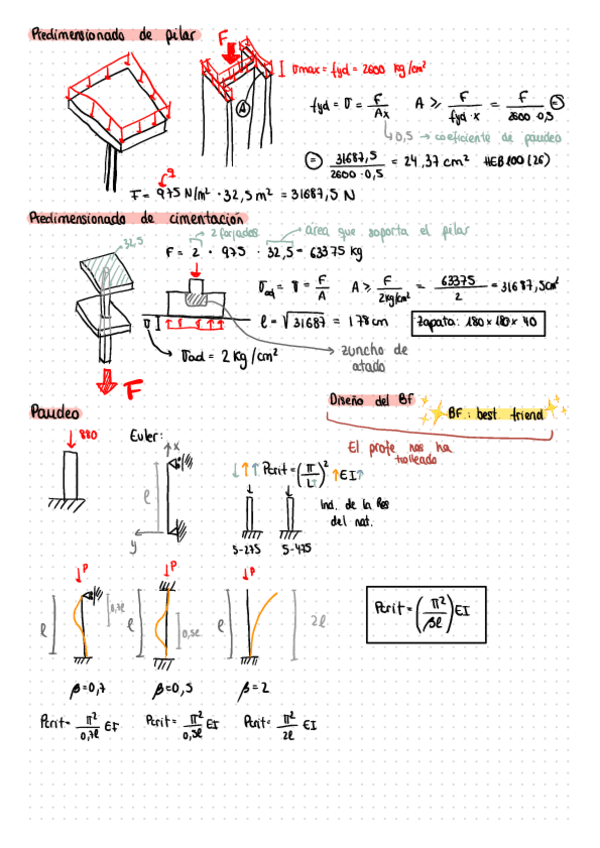 Predimensionado de pilar
F
σmax = fyd = 2600 kg/cm²
A
fyd = σ = F/Aχ A ≥ F/(fyd · χ) = F/(2600 · 0,5) =
0,5 → coeficiente de pandeo
= 31687,5/(2600 · 0,5) = 24,37 cm² HEB100 (26)
q
F = 975 N/m² · 32,5 m² = 31687,5 N
Predimensionado de cimentación
32,5
2 forjados
área que soporta el pilar
F = 2 · 975 · 32,5 = 63375 kg
σad = σ = F/A A ≥ F/(2kg/cm²) = 63375/2 = 31687,5cm²
l = √31687 = 178cm
Zapata: 180 x 180 x 40
σ
σad = 2 kg/cm²
zuncho de
atado
F
Pandeo
880
Euler:
x
l
y
Diseño del BF
BF: best friend
El profe nos ha
trolleado
↓↑↑ Pcrit = (π/L↑)² ↑EI↑
Ind. de la Res
del nat.
S-275 S-475
P
l
0,7l
P
l
0,5l
P
l
2l
Pcrit = (π²/βl) EI
β = 0,7 β = 0,5 β = 2
Pcrit = π²/0,7l EI Pcrit = π²/0,5l EI Pcrit = π²/2l EI